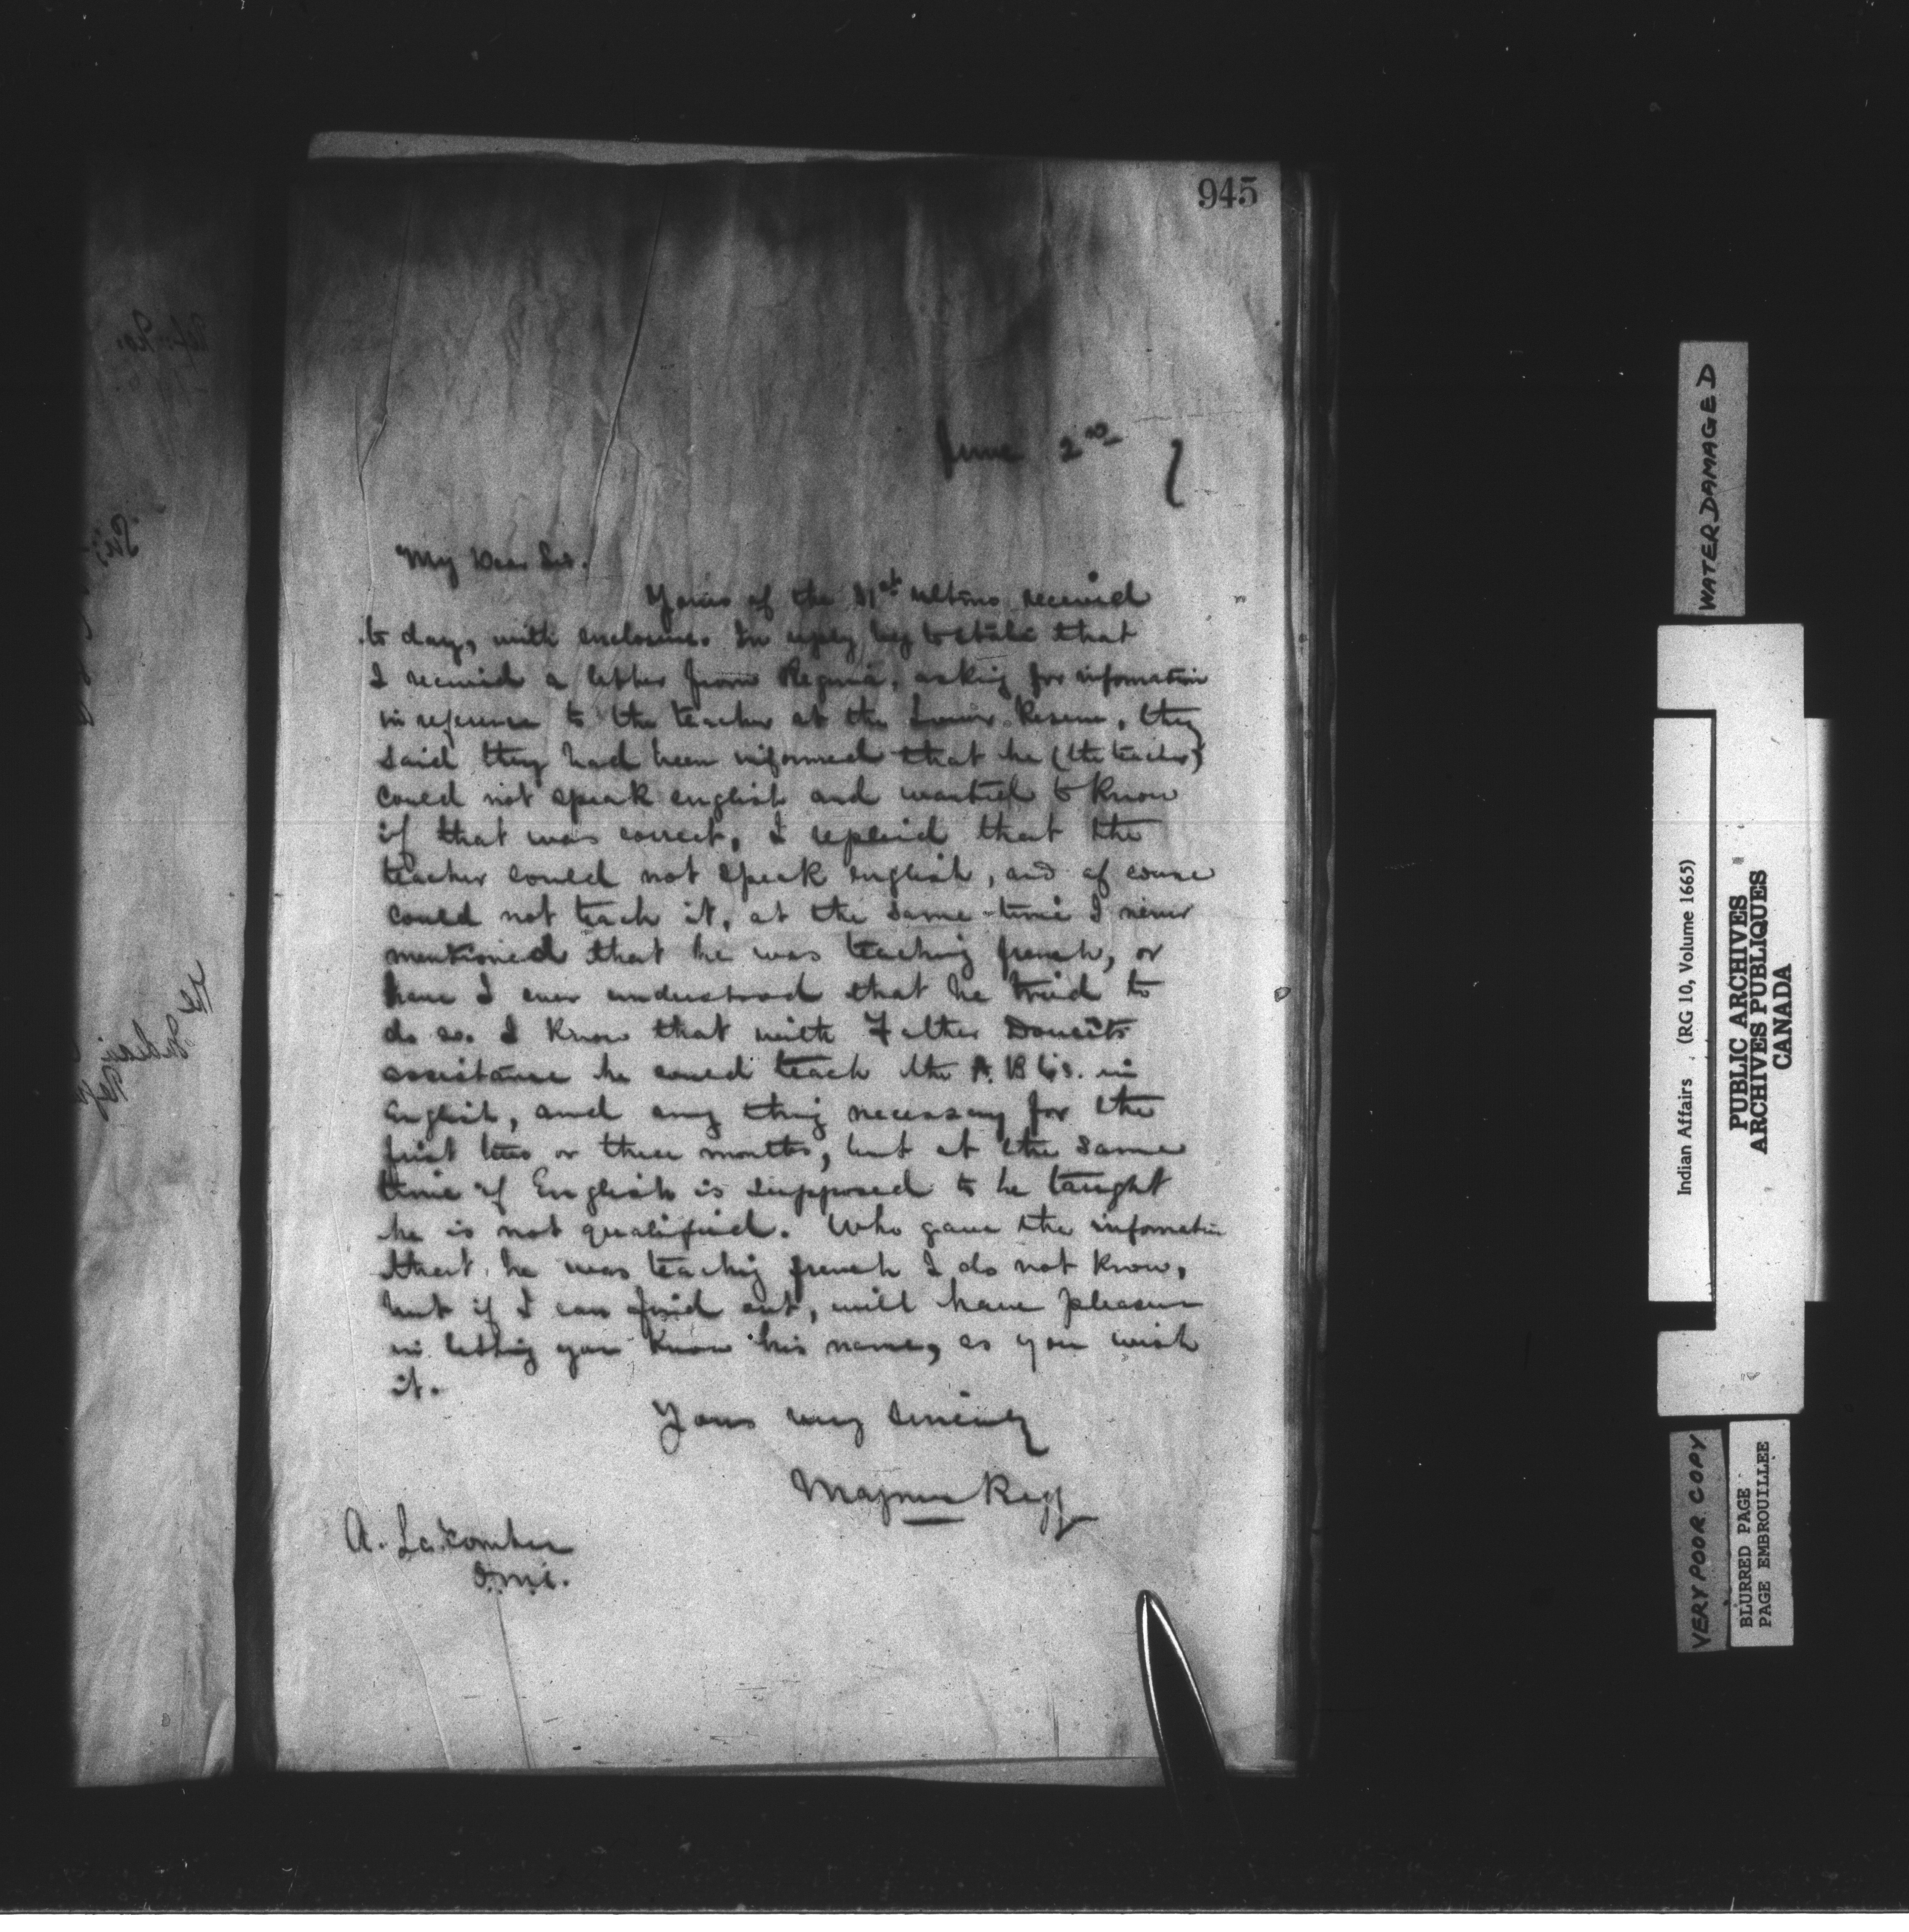 945
June 2nd 7
My Dear Sir.
Yours of the 31st ultimo received
to day, with enclosure. In reply beg to state that
I received a letter from Regina, asking for information
in reference to the teacher at the Lower Reserve, they
said they had been informed that he (the teacher)
could not speak english and wanted to know
if that was correct, I replied that the
teacher could not speak english, and of course
could not teach it, at the same time I never
mentioned that he was teaching french, or
have I ever understood that he tried to
do so. I know that with Father Doucets
assistance he could teach the A.B.C's. in
English, and any thing necessary for the
first two or three months, but at the same
time if English is supposed to be taught
he is not qualified. Who gave the information
that he was teaching french I do not know,
but if I can find out, will have pleasure
in letting you know his name, as you wish
it.
Yours very sincerely
Magnus Begg
A. Lacombe
O.M.I.
WATER DAMAGED
Indian Affairs . (RG 10, Volume 1665)
PUBLIC ARCHIVES
ARCHIVES PUBLIQUES
CANADA
VERY POOR COPY
BLURRED PAGE
PAGE EMBROUILLEE